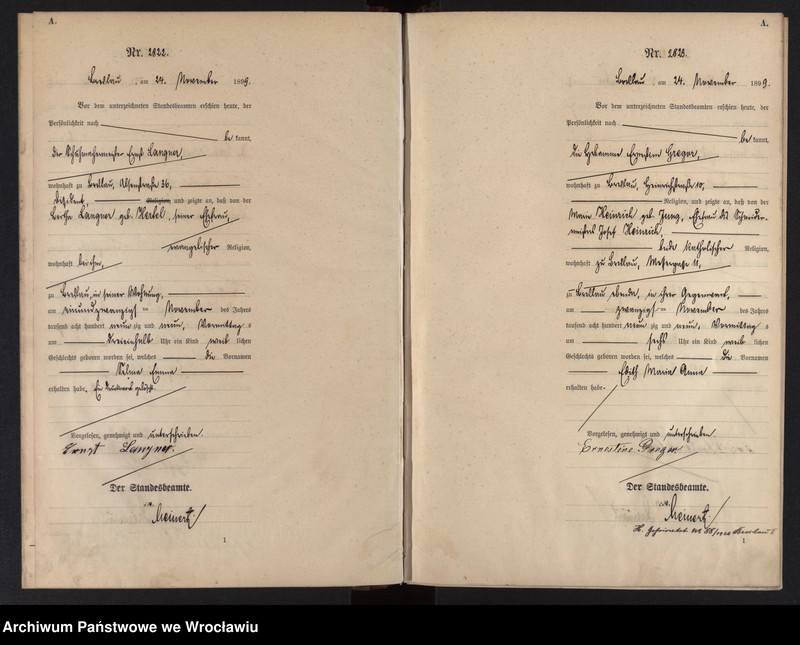 A.
Nr. 2822.
Breslau, am 24. November 1899.
Vor dem unterzeichneten Standesbeamten erschien heute, der
Persönlichkeit nach
be kannt,
der Ernst Langner,
wohnhaft zu Breslau, 36,
Dissident, Religion, und zeigte an, daß von der
Bertha Langner geb. Hertel, seiner Ehefrau,
evangelischer Religion,
wohnhaft bei ihm,
zu Breslau, in seiner Wohnung,
am einundzwanzigsten November des Jahres
tausend acht hundert neun zig und neun, Vormittags
um dreieinhalb Uhr ein Kind weib lichen
Geschlechts geboren worden sei, welches die Vornamen
Selma Emma
erhalten habe. Ein Druckwort gelöscht.
Vorgelesen, genehmigt und unterschrieben.
Ernst Langner.
Der Standesbeamte.
Meinert
1
A.
Nr. 2823.
Breslau, am 24. November 1899.
Vor dem unterzeichneten Standesbeamten erschien heute, der
Persönlichkeit nach
be kannt,
die Hebamme Ernestine Gregor,
wohnhaft zu Breslau, Heinrichstraße 10,
Religion, und zeigte an, daß von der
Maria Heinrich geb. Jung, Ehefrau des Schneider-
meisters Josef Heinrich,
beide katholischer Religion,
wohnhaft zu Breslau, 11,
zu Breslau ebenda, in ihrer Gegenwart,
am zwanzigsten November des Jahres
tausend acht hundert neun zig und neun, Vormittag s
um sechs Uhr ein Kind weib lichen
Geschlechts geboren worden sei, welches die Vornamen
Edith Maria Anna
erhalten habe.
Vorgelesen, genehmigt und unterschrieben.
Ernestine Gregor.
Der Standesbeamte.
Meinert
1
Archiwum Państwowe we Wrocławiu